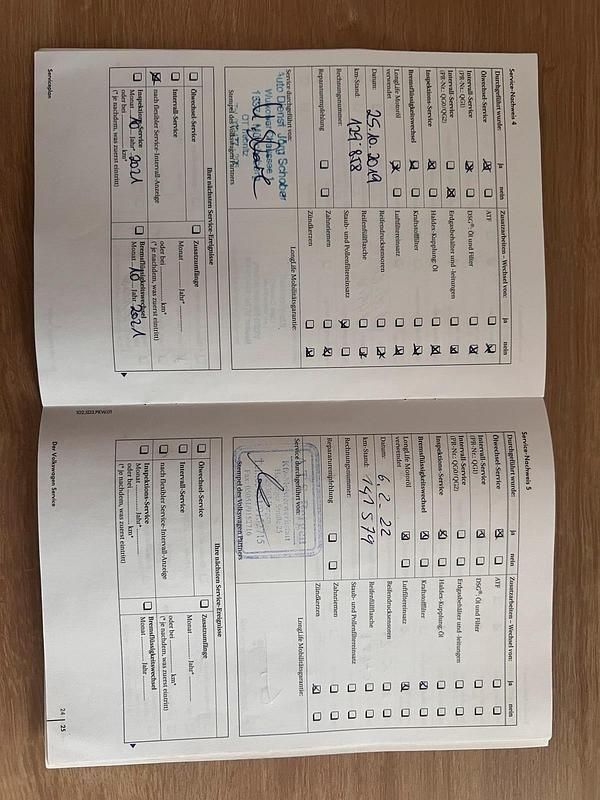 Service-Nachweis 4
Durchgeführt wurde: ja nein
Ölwechsel-Service
Intervall-Service
(PR-Nr.: QG1)
Intervall-Service
(PR-Nr.: QG0/QG2)
Inspektions-Service
Bremsflüssigkeitswechsel
LongLife Motoröl
verwendet
Datum: 25.10.2019
km-Stand: 129'858
Rechnungsnummer:
Reparaturempfehlung
Zusatzarbeiten – Wechsel von: ja nein
ATF
DSG®: Öl und Filter
Erdgasbehälter und -leitungen
Haldex-Kupplung: Öl
Kraftstofffilter
Luftfiltereinsatz
Reifendrucksensoren
Reifenfüllflasche
Staub- und Pollenfiltereinsatz
Zahnriemen
Zündkerzen
Service durchgeführt von:
Auto Dienst Jörg Schober
Stempel des Volkswagen Partners
LongLife Mobilitätsgarantie:
Ihre nächsten Service-Ereignisse
Ölwechsel-Service
Intervall-Service
nach flexibler Service-Intervall-Anzeige
Inspektions-Service
Monat 10 Jahr* 2021
oder bei km*
(* je nachdem, was zuerst eintritt)
Zusatzumfänge
Monat Jahr*
oder bei km*
(* je nachdem, was zuerst eintritt)
Bremsflüssigkeitswechsel
Monat 10 Jahr 2021
Serviceplan
Service-Nachweis 5
Durchgeführt wurde: ja nein
Ölwechsel-Service
Intervall-Service
(PR-Nr.: QG1)
Intervall-Service
(PR-Nr.: QG0/QG2)
Inspektions-Service
Bremsflüssigkeitswechsel
LongLife Motoröl
verwendet
Datum: 6.2-22
km-Stand: 147579
Rechnungsnummer:
Reparaturempfehlung
Zusatzarbeiten – Wechsel von: ja nein
ATF
DSG®: Öl und Filter
Erdgasbehälter und -leitungen
Haldex-Kupplung: Öl
Kraftstofffilter
Luftfiltereinsatz
Reifendrucksensoren
Reifenfüllflasche
Staub- und Pollenfiltereinsatz
Zahnriemen
Zündkerzen
Service durchgeführt von:
Stempel des Volkswagen Partners
LongLife Mobilitätsgarantie:
Ihre nächsten Service-Ereignisse
Ölwechsel-Service
Intervall-Service
nach flexibler Service-Intervall-Anzeige
Inspektions-Service
Monat Jahr*
oder bei km*
(* je nachdem, was zuerst eintritt)
Zusatzumfänge
oder bei km*
(* je nachdem, was zuerst eintritt)
Bremsflüssigkeitswechsel
Monat Jahr
Der Volkswagen Service
24 | 25